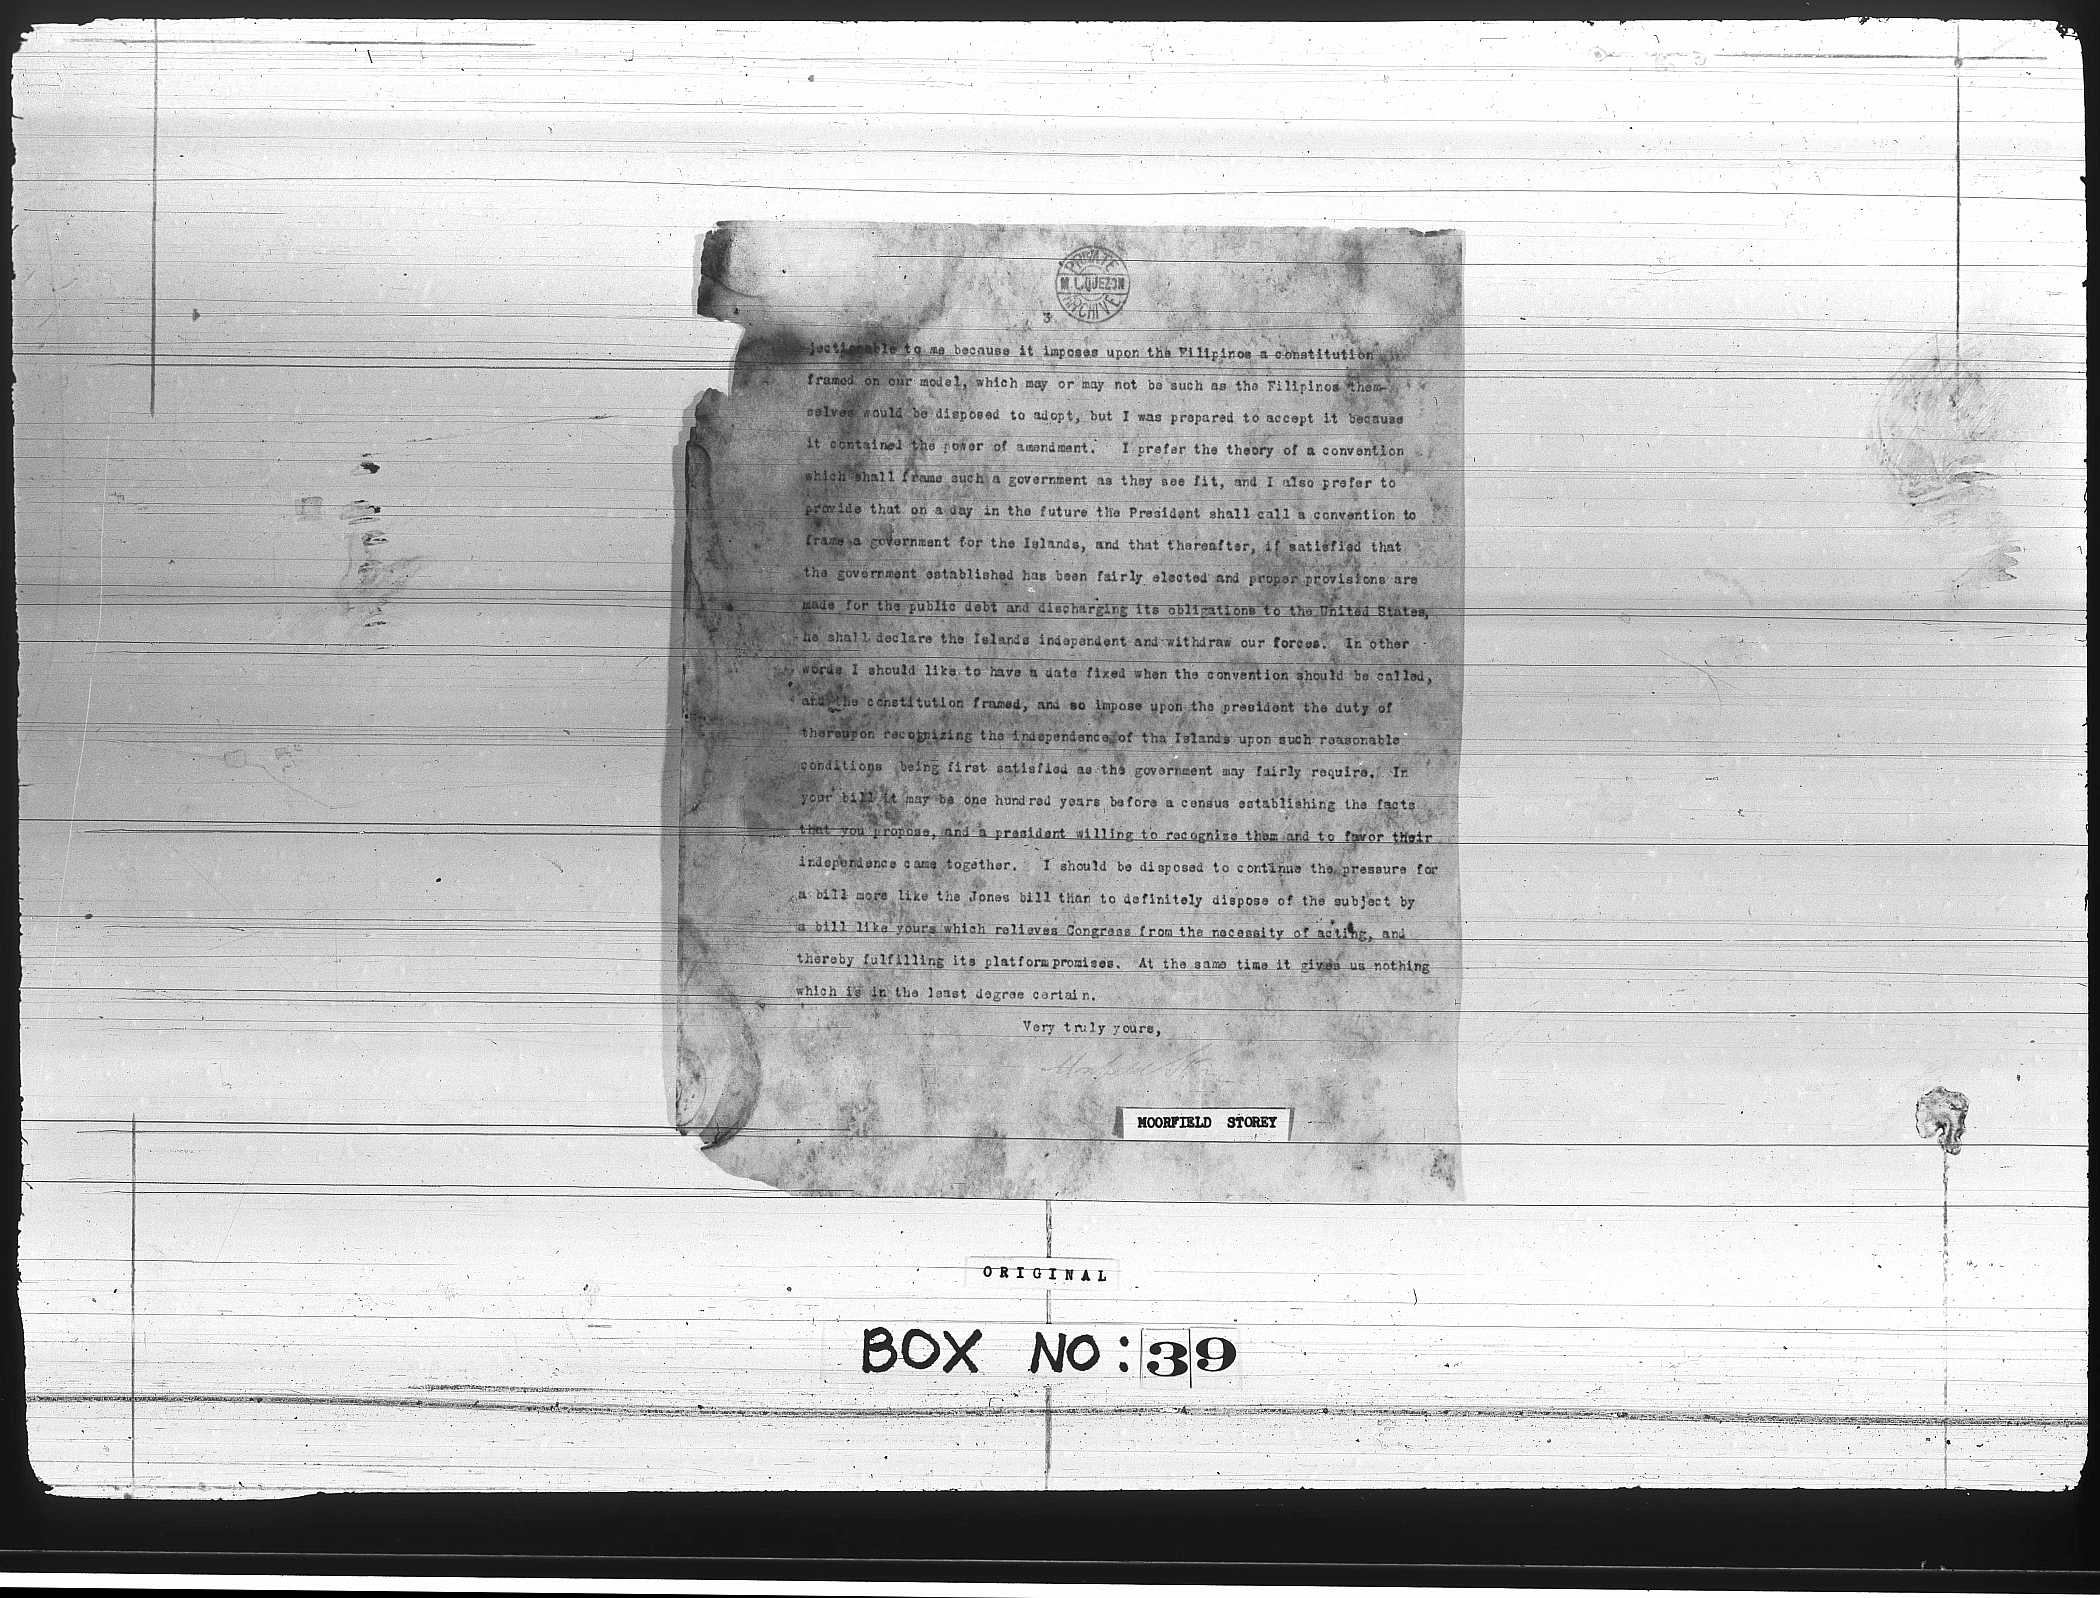 PRIVATE
M. L. QUEZON
ARCHIVE
3
jectionable to me because it imposes upon the Filipinos a constitution
framed on our model, which may or may not be such as the Filipinos them-
selves would be disposed to adopt, but I was prepared to accept it because
it contained the power of amendment. I prefer the theory of a convention
which shall frame such a government as they see fit, and I also prefer to
provide that on a day in the future the President shall call a convention to
frame a government for the Islands, and that thereafter, if satisfied that
the government established has been fairly elected and proper provisions are
made for the public debt and discharging its obligations to the United States,
he shall declare the Islands independent and withdraw our forces. In other
words I should like to have a date fixed when the convention should be called,
and the constitution framed, and so impose upon the president the duty of
thereupon recognizing the independence of tha Islands upon such reasonable
conditions being first satisfied as the government may fairly require. In
your bill it may be one hundred years before a census establishing the facts
that you propose, and a president willing to recognize them and to favor their
independence came together. I should be disposed to continue the pressure for
a bill more like the Jones bill than to definitely dispose of the subject by
a bill like yours which relieves Congress from the necessity of acting, and
thereby fulfilling its platform promises. At the same time it gives us nothing
which is in the least degree certain.
Very truly yours,
MOORFIELD STOREY
ORIGINAL
BOX NO: 39